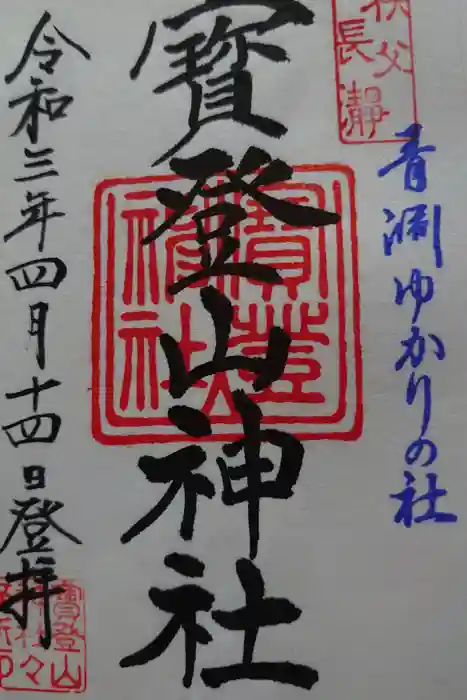 秩父
長瀞
青淵ゆかりの社
寳登山神社
寳登
山神社
令和三年四月十四日登拝
寳登山